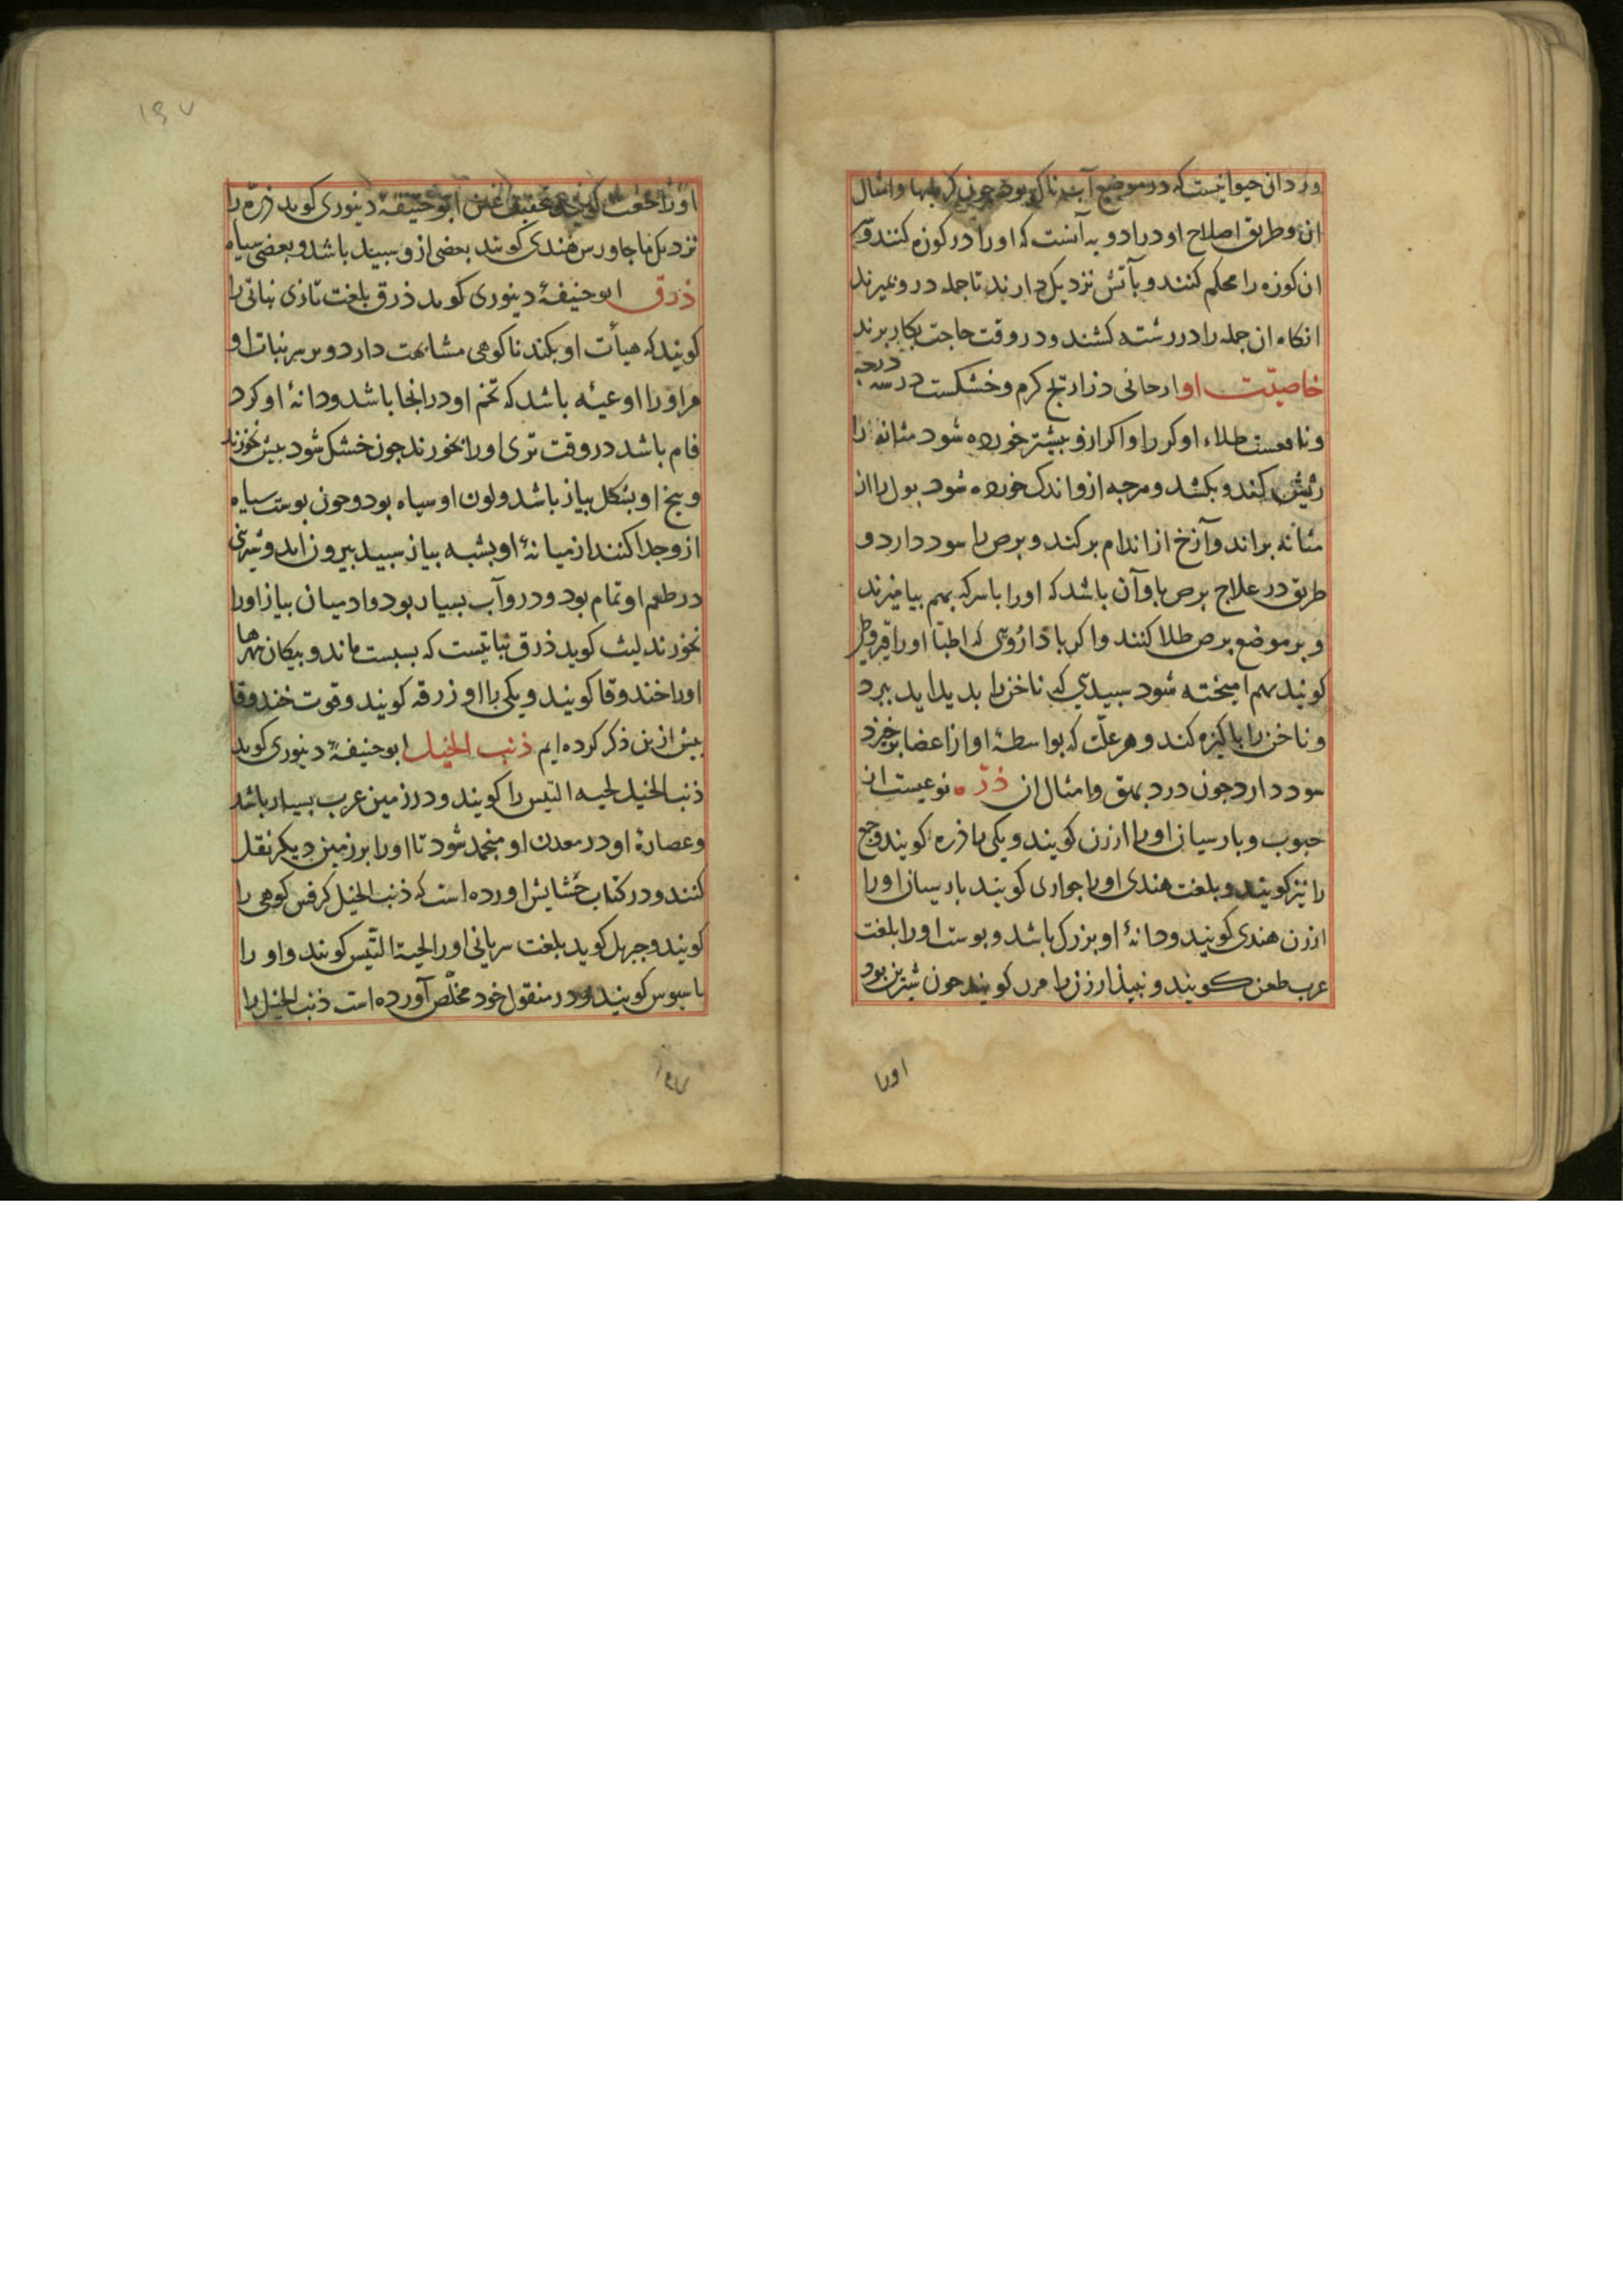 وزدانی حیوانیست که در موضع آب ناک بود چون کرمها و امثال
ان و طریق اصلاح او در ادویه آنست که او را در کوزه کنند و سر
ان کوزه را محکم کنند و بآتش نزدیک دارند تا جمله درو بمیرند
انکاه ان جمله را در رشته کشند و در وقت حاجت بکار برند
خاصیّت او ارجانی ذراریح کرم و خشکست در سه درجه
و نافعست طلاء او کر را و اکر ازو بیشتر خورده شود مثانه را
ریش کند و بکشد و هرچه ازو اندک خورده شود بول را از
مثانه براند و آزخ از اندام برکند و برص را سود دارد و
طریق در علاج برص باو آن باشد که او را با سرکه بهم بیامیزند
و بر موضع برص طلا کنند و اکر با داروئی که اطبّا او را قیروطی
کویند بهم امیخته شود سبیدی که ناخن را بدید اید ببرد
و ناخن را پاکیزه کند و هر علّت که بواسطهٔ او از اعضا برخیزد
سود دارد چون درد بهق و امثال ان ذرّه نوعیست از
حبوب و پارسیان او را ارزن کویند و یکی را ذره کویند و جمع
را نیز کویند و بلغت هندی او را جواری کویند پارسیان او را
ارزن هندی کویند و دانهٔ او بزرک باشد و بوست او را بلغت
عرب طعن کویند و نبیذ ارزن را مزر کویند چون شیرین بود
اورا
۱۹۷
او را کویند ابو حنیفهٔ دینوری کوید ذره را
نزدیک ما جاورس هندی کویند بعضی ازو سبید باشد و بعضی سیاه
ذرق ابو حنیفهٔ دینوری کوید ذرق بلغت تازی نباتی را
کویند که هیأت او بکندنا کوهی مشابهت دارد و بر سر نبات او
مر او را اوعیه باشد که تخم او در انجا باشد و دانهٔ او کرد
فام باشد در وقت تری او را بخورند چون خشک شود بیش نخورند
و بیخ او بشکل بیاز باشد و لون او سیاه بود و چون بوست سیاه
ازو جدا کنند از میانهٔ او بشبه بیاز سبید بیرون اید و شیرینی
در طعم او تمام بود و درو آب بسیار بود و ادمیان بیاز او را
بخورند لیث کوید ذرق نباتیست که بسبست ماند و بیکان شهرها
او را حندوقا کویند و یکی را او ذرقه کویند و قوت حندوقا
بیش ازین ذکر کرده ایم ذنب الخیل ابو حنیفهٔ دینوری کوید
ذنب الخیل لحیه التیس را کویند و در زمین عرب بسیار باشد
و عصارهٔ او در معدن او منجمد شود تا او را بر زمین دیکر نقل
کنند و در کتاب حشایش اورده است که ذنب الخیل کرفس کوهی را
کویند و جبرئیل کوید بلغت سریانی او را لحیة التّیس کویند و او را
باسبوس کویند و در منقول خود مخلّص آورده است ذنب الخیل را